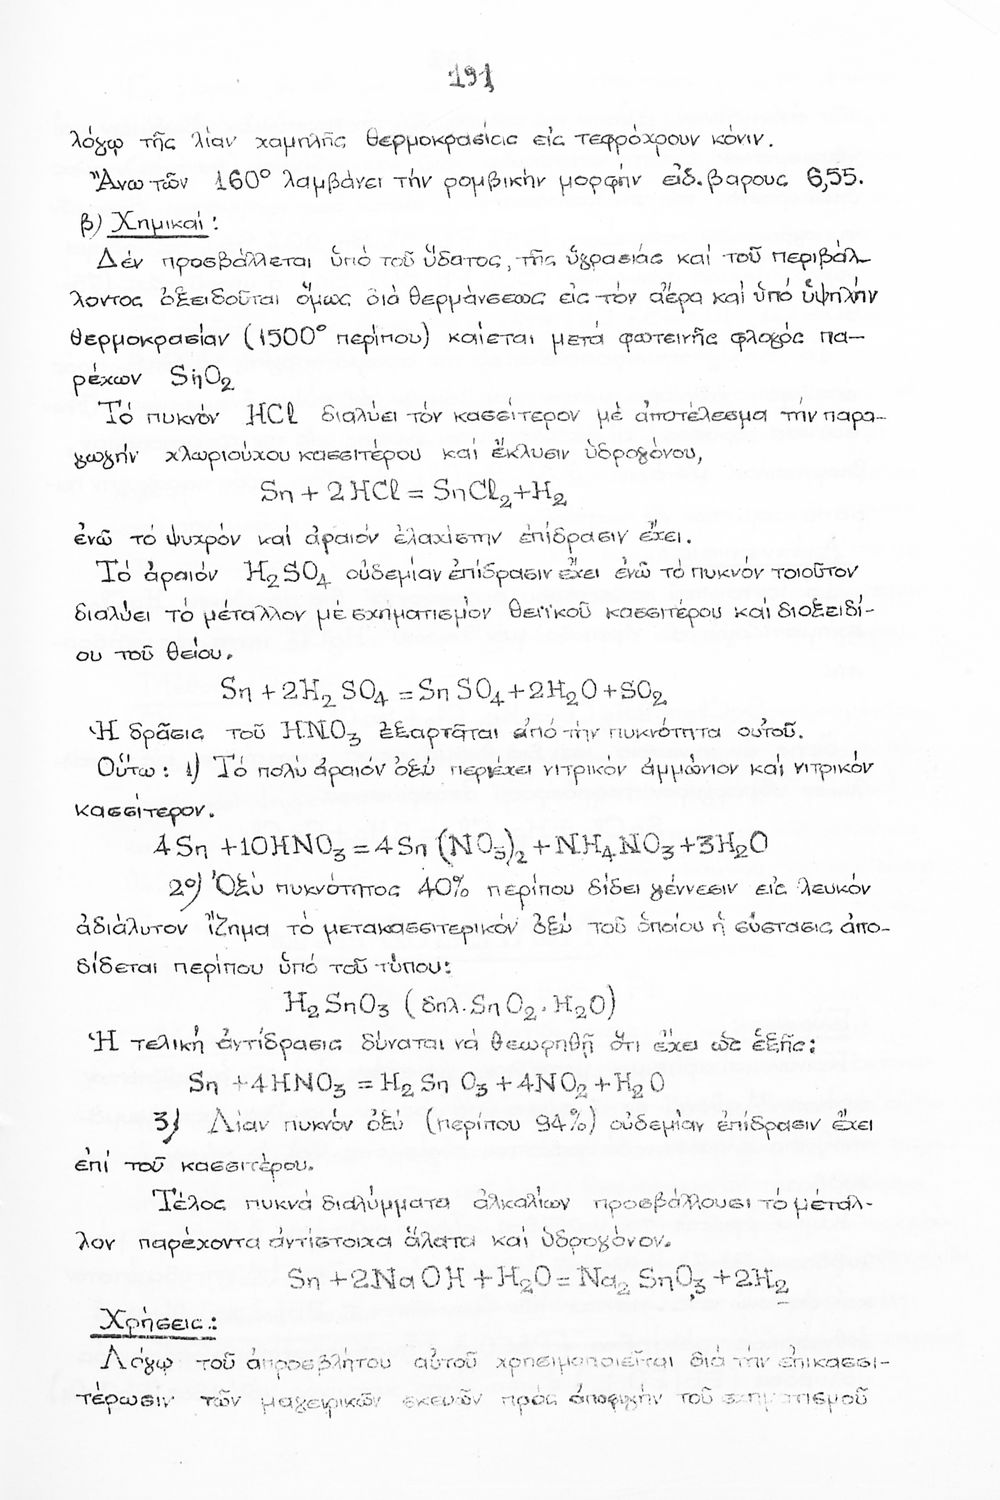 191
λόγῳ τῆς λίαν χαμηλῆς θερμοκρασίας εἰς τεφρόχρουν κόνιν.
Ἄνω τῶν 160° λαμβάνει τήν ρομβικήν μορφήν εἰδ. βαρους 6,55.
β) Χημικαί :
Δέν προσβάλλεται ὑπό τοῦ ὕδατος, τῆς ὑγρασιάς καί τοῦ περιβάλ-
λοντος ὀξειδοῦται ὅμως διά θερμάνσεως εἰς τόν ἀέρα καί ὑπό ὑψηλήν
θερμοκρασίαν (1500° περίπου) καίεται μετά φωτεινῆς φλογός πα-
ρέχων SnO2
Τό πυκνόν HCl διαλύει τόν κασσίτερον μέ ἀποτέλεσμα τήν παρα-
γωγήν χλωριούχου κασσιτέρου καί ἔκλυσιν ὑδρογόνου,
Sn + 2HCl = SnCl2 + H2
ἐνῶ τό ψυχρόν καί ἀραιόν ἐλαχίστην ἐπίδρασιν ἔχει.
Τό ἀραιόν H2SO4 οὐδεμίαν ἐπίδρασιν ἔχει ἐνῶ τό πυκνόν τοιοῦτον
διαλύει τό μέταλλον μέ σχηματισμόν θειϊκοῦ κασσιτέρου καί διοξειδί-
ου τοῦ θείου.
Sn + 2H2SO4 = SnSO4 + 2H2O + SO2
Ἡ δρᾶσις τοῦ HNO3 ἐξαρτᾶται ἀπό τήν πυκνότητα αὐτοῦ.
Οὕτω : 1) Τό πολύ ἀραιόν ὀξύ περιέχει νιτρικόν ἀμμώνιον καί νιτρικόν
κασσίτερον.
4Sn + 10HNO3 = 4Sn(NO3)2 + NH4NO3 + 3H2O
2ο) Ὀξύ πυκνότητος 40% περίπου δίδει γέννεσιν εἰς λευκόν
ἀδιάλυτον ἵζημα τό μετακασσιτερικόν ὀξύ τοῦ ὁποίου ἡ σύστασις ἀπο-
δίδεται περίπου ὑπό τοῦ τύπου:
H2SnO3 (δηλ. SnO2. H2O)
Ἡ τελική ἀντίδρασις δύναται νά θεωρηθῇ ὅτι ἔχει ὡς ἑξῆς:
Sn + 4HNO3 = H2SnO3 + 4NO2 + H2O
3) Λίαν πυκνόν ὀξύ (περίπου 94%) οὐδεμίαν ἐπίδρασιν ἔχει
ἐπί τοῦ κασσιτέρου.
Τέλος πυκνά διαλύμματα ἀλκαλίων προσβάλλουσι τό μέταλ-
λον παρέχοντα ἀντίστοιχα ἅλατα καί ὑδρογόνον.
Sn + 2NaOH + H2O = Na2SnO3 + 2H2
Χρήσεις :
Λόγῳ τοῦ ἀπροσβλήτου αὐτοῦ χρησιμοποιεῖται διά τήν ἐπικασσι-
τέρωσιν τῶν μαγειρικῶν σκευῶν πρός ἀποφυγήν τοῦ σχηματισμοῦ